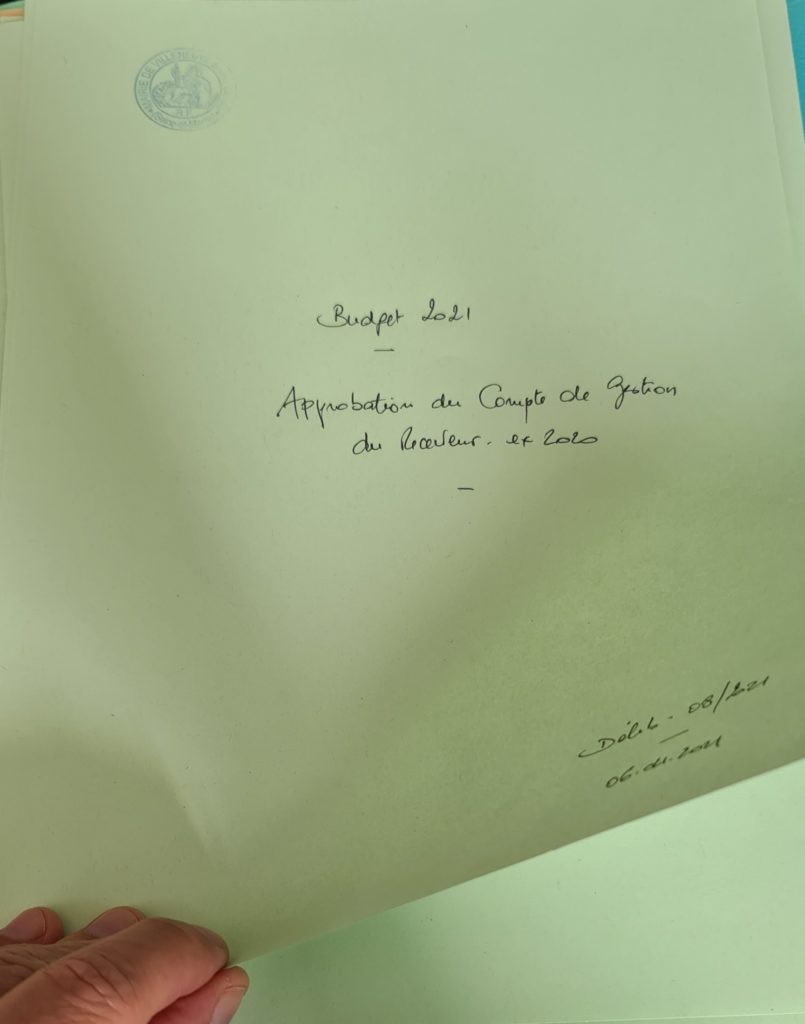 MAIRIE DE VILLENEUVE
Budget 2021
—
Approbation du Compte de Gestion
du Receveur. ex 2020
—
Délib. 08/2021
—
06.04.2021